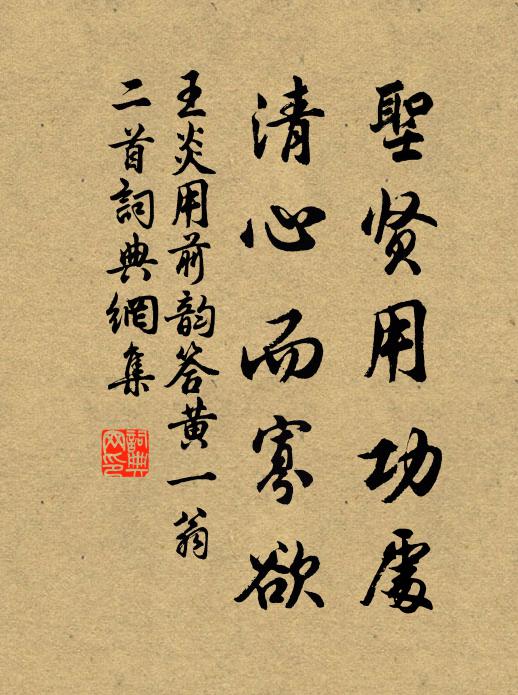 聖贤用功處
清心而寡欲
王炎用前韵答黄一翁
二首詞典網集
詞典
网印